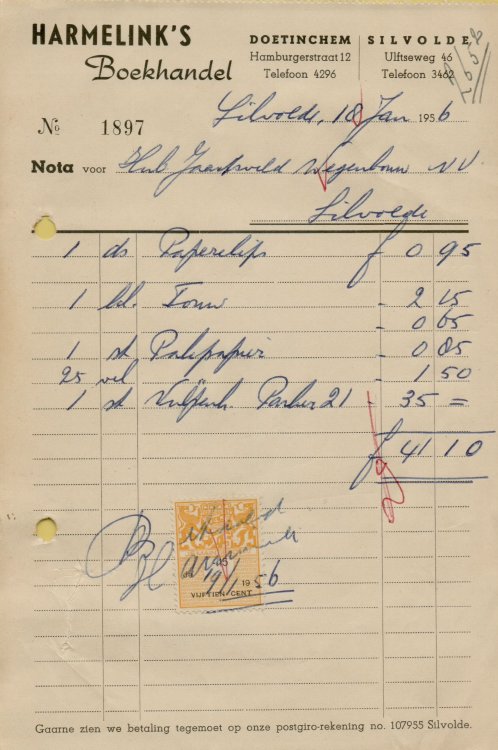 HARMELINK'S
Boekhandel
DOETINCHEM
Hamburgerstraat 12
Telefoon 4296
SILVOLDE
Ulftseweg 46
Telefoon 3462
Silvolde, 18 Jan 1956
No 1897
Nota voor Hub Wegenbouw NV
Silvolde
1 ds Paperclips f 0 95
1 kl. Touw - 2 15
- 0 65
1 - 0 85
25 vel - 1 50
1 st Vulpenh. Parker 21 - 35 =
f 41 10
19/1 1956
VIJFTIEN CENT
Gaarne zien we betaling tegemoet op onze postgiro-rekening no. 107955 Silvolde.